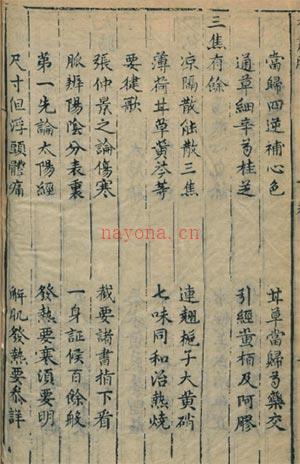 當歸四逆補心色　甘草當歸芎藥交
通草細辛芍桂芝　引經黃栢及阿膠
三焦有餘
涼隔散能散三焦　連翹梔子大黃硝
薄荷甘草黃芩等　七味同和治熱燒
要徤歌
張仲景之論傷寒　截要諸書指下看
脉辨陽陰分表裏　一身証候百餘般
第一先論太陽經　發熱要寒須要明
尺寸但浮頭體痛　解肌發熱要參詳
nayona.cn